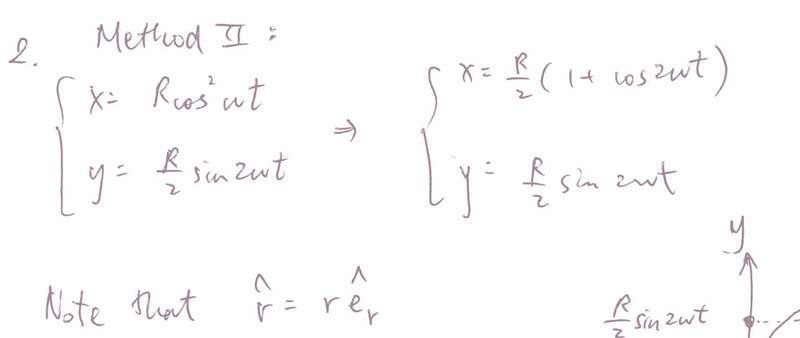 2. Method II:
x = R cos² ωt ⇒ x = R/2 (1 + cos 2ωt)
y = R/2 sin 2ωt y = R/2 sin 2ωt
y
Note that r̂ = r ê_r
R/2 sin 2ωt